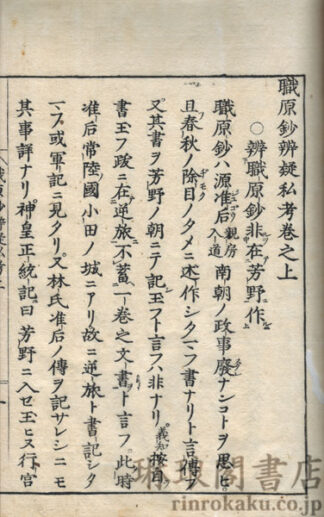 職原鈔辨疑私考巻之上
○辨職原鈔非在芳野作
職原鈔ハ源准后觀房入道南朝ノ政事廢ナンコトヲ思ヒ
且春秋ノ除目ノタメニ述作シタマフ書ナリト言傳フ
又其書ヲ芳野ノ朝ニテ記玉フト言フハ非ナリ義知按自
書玉フ政ニ在逆旅不蓄一巻之文書ト言フ此時
准后常陸國小田ノ城ニアリ故ニ逆旅ト書記シタ
マフ或軍記ニ見クリ又林氏准后ノ傳ヲ記サレシニモ
其事詳ナリ神皇正統記曰芳野ニ入セ玉ヒス行宮
琳琅閣書店
rinrokaku.co.jp